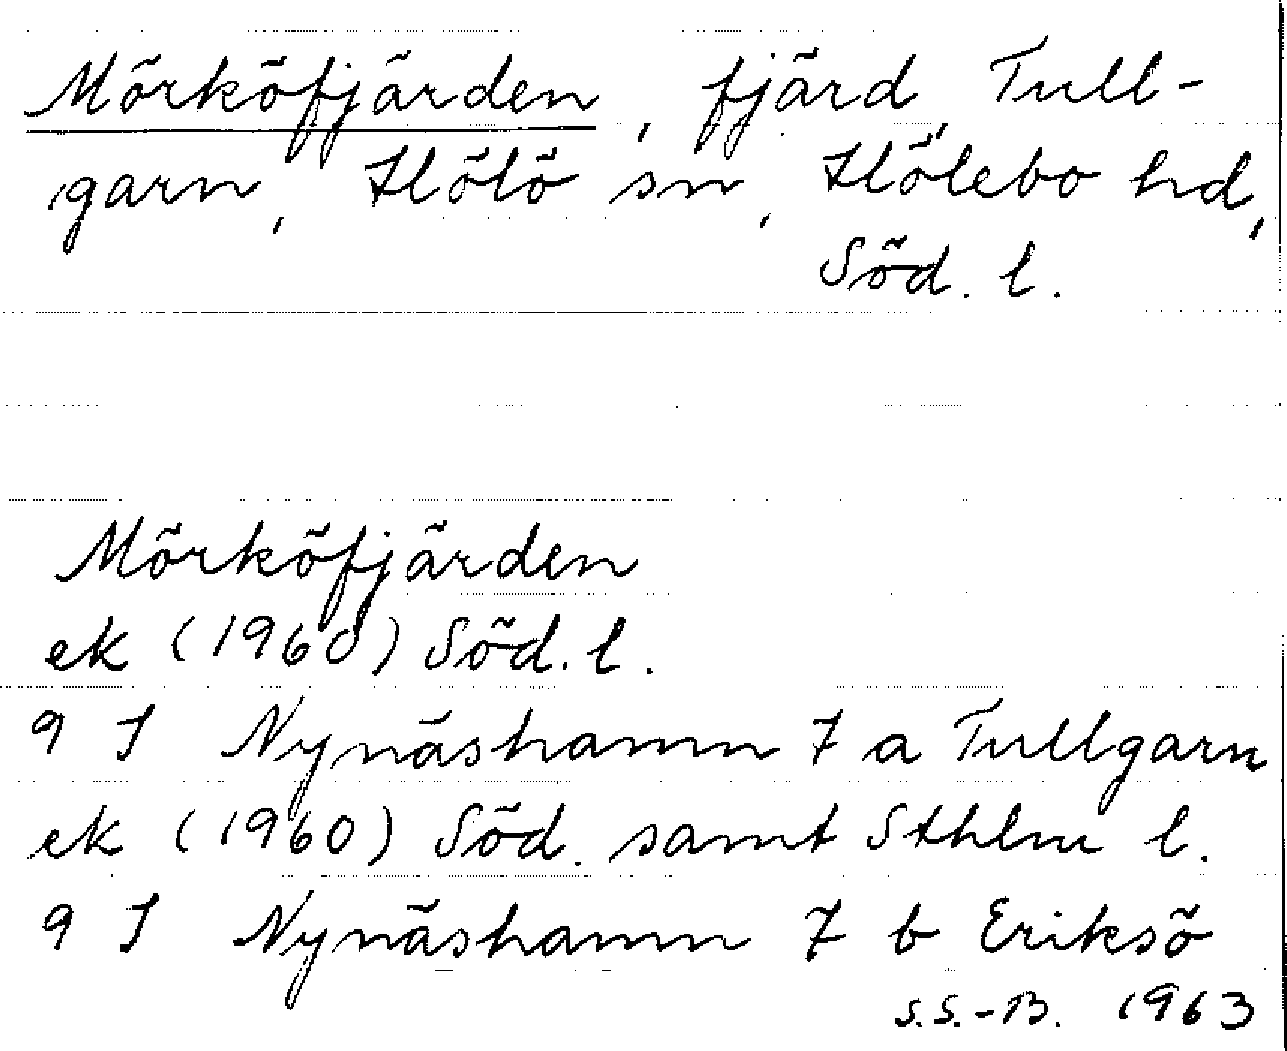 Mörköfjärden, fjärd, Tull-
garn, Hölö sn, Hölebo hd,
Söd. l.
Mörköfjärden
ek (1960) Söd. l.
9 I Nynäshamn 7 a Tullgarn
ek (1960) Söd. samt Sthlm l.
9 I Nynäshamn 7 b Eriksö
S.S.-B. 1963